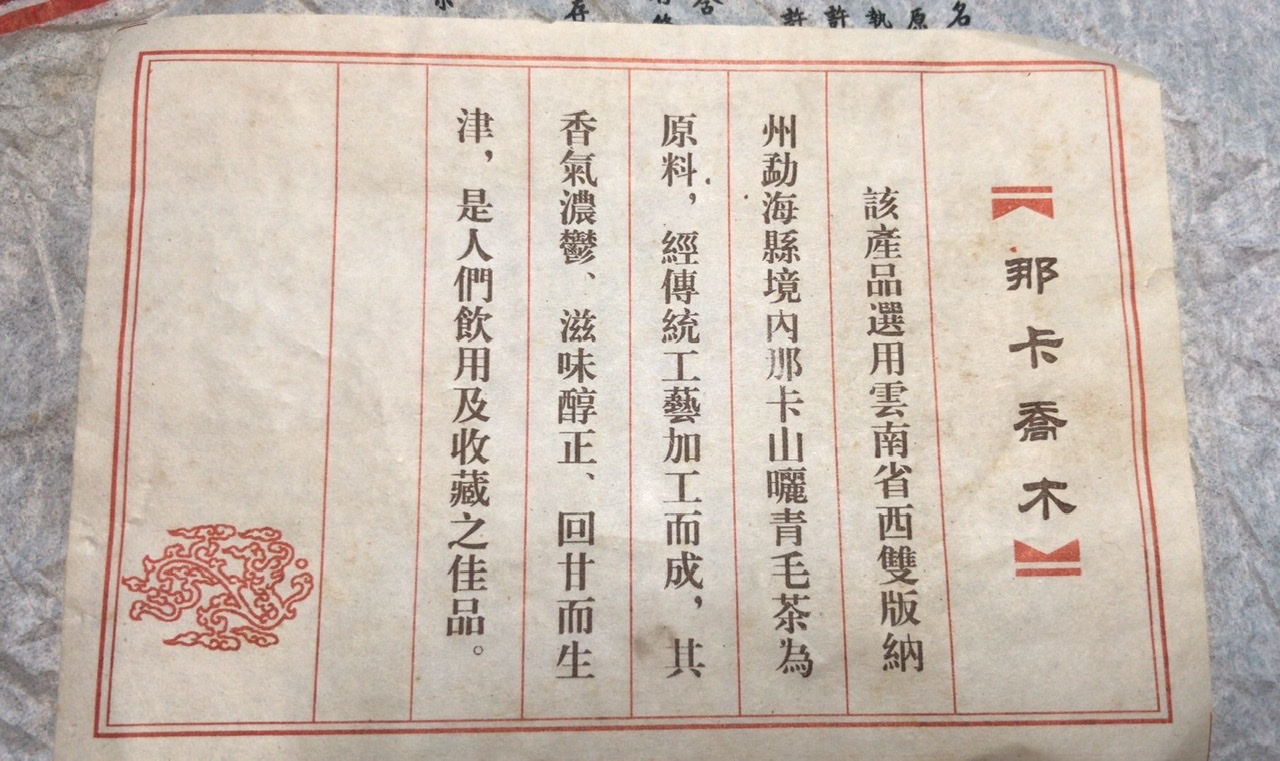 【那卡喬木】
該產品選用雲南省西雙版納
州勐海縣境內那卡山曬青毛茶為
原料，經傳統工藝加工而成，其
香氣濃鬱、滋味醇正、回甘而生
津，是人們飲用及收藏之佳品。
名
原
執
許
許
含
存